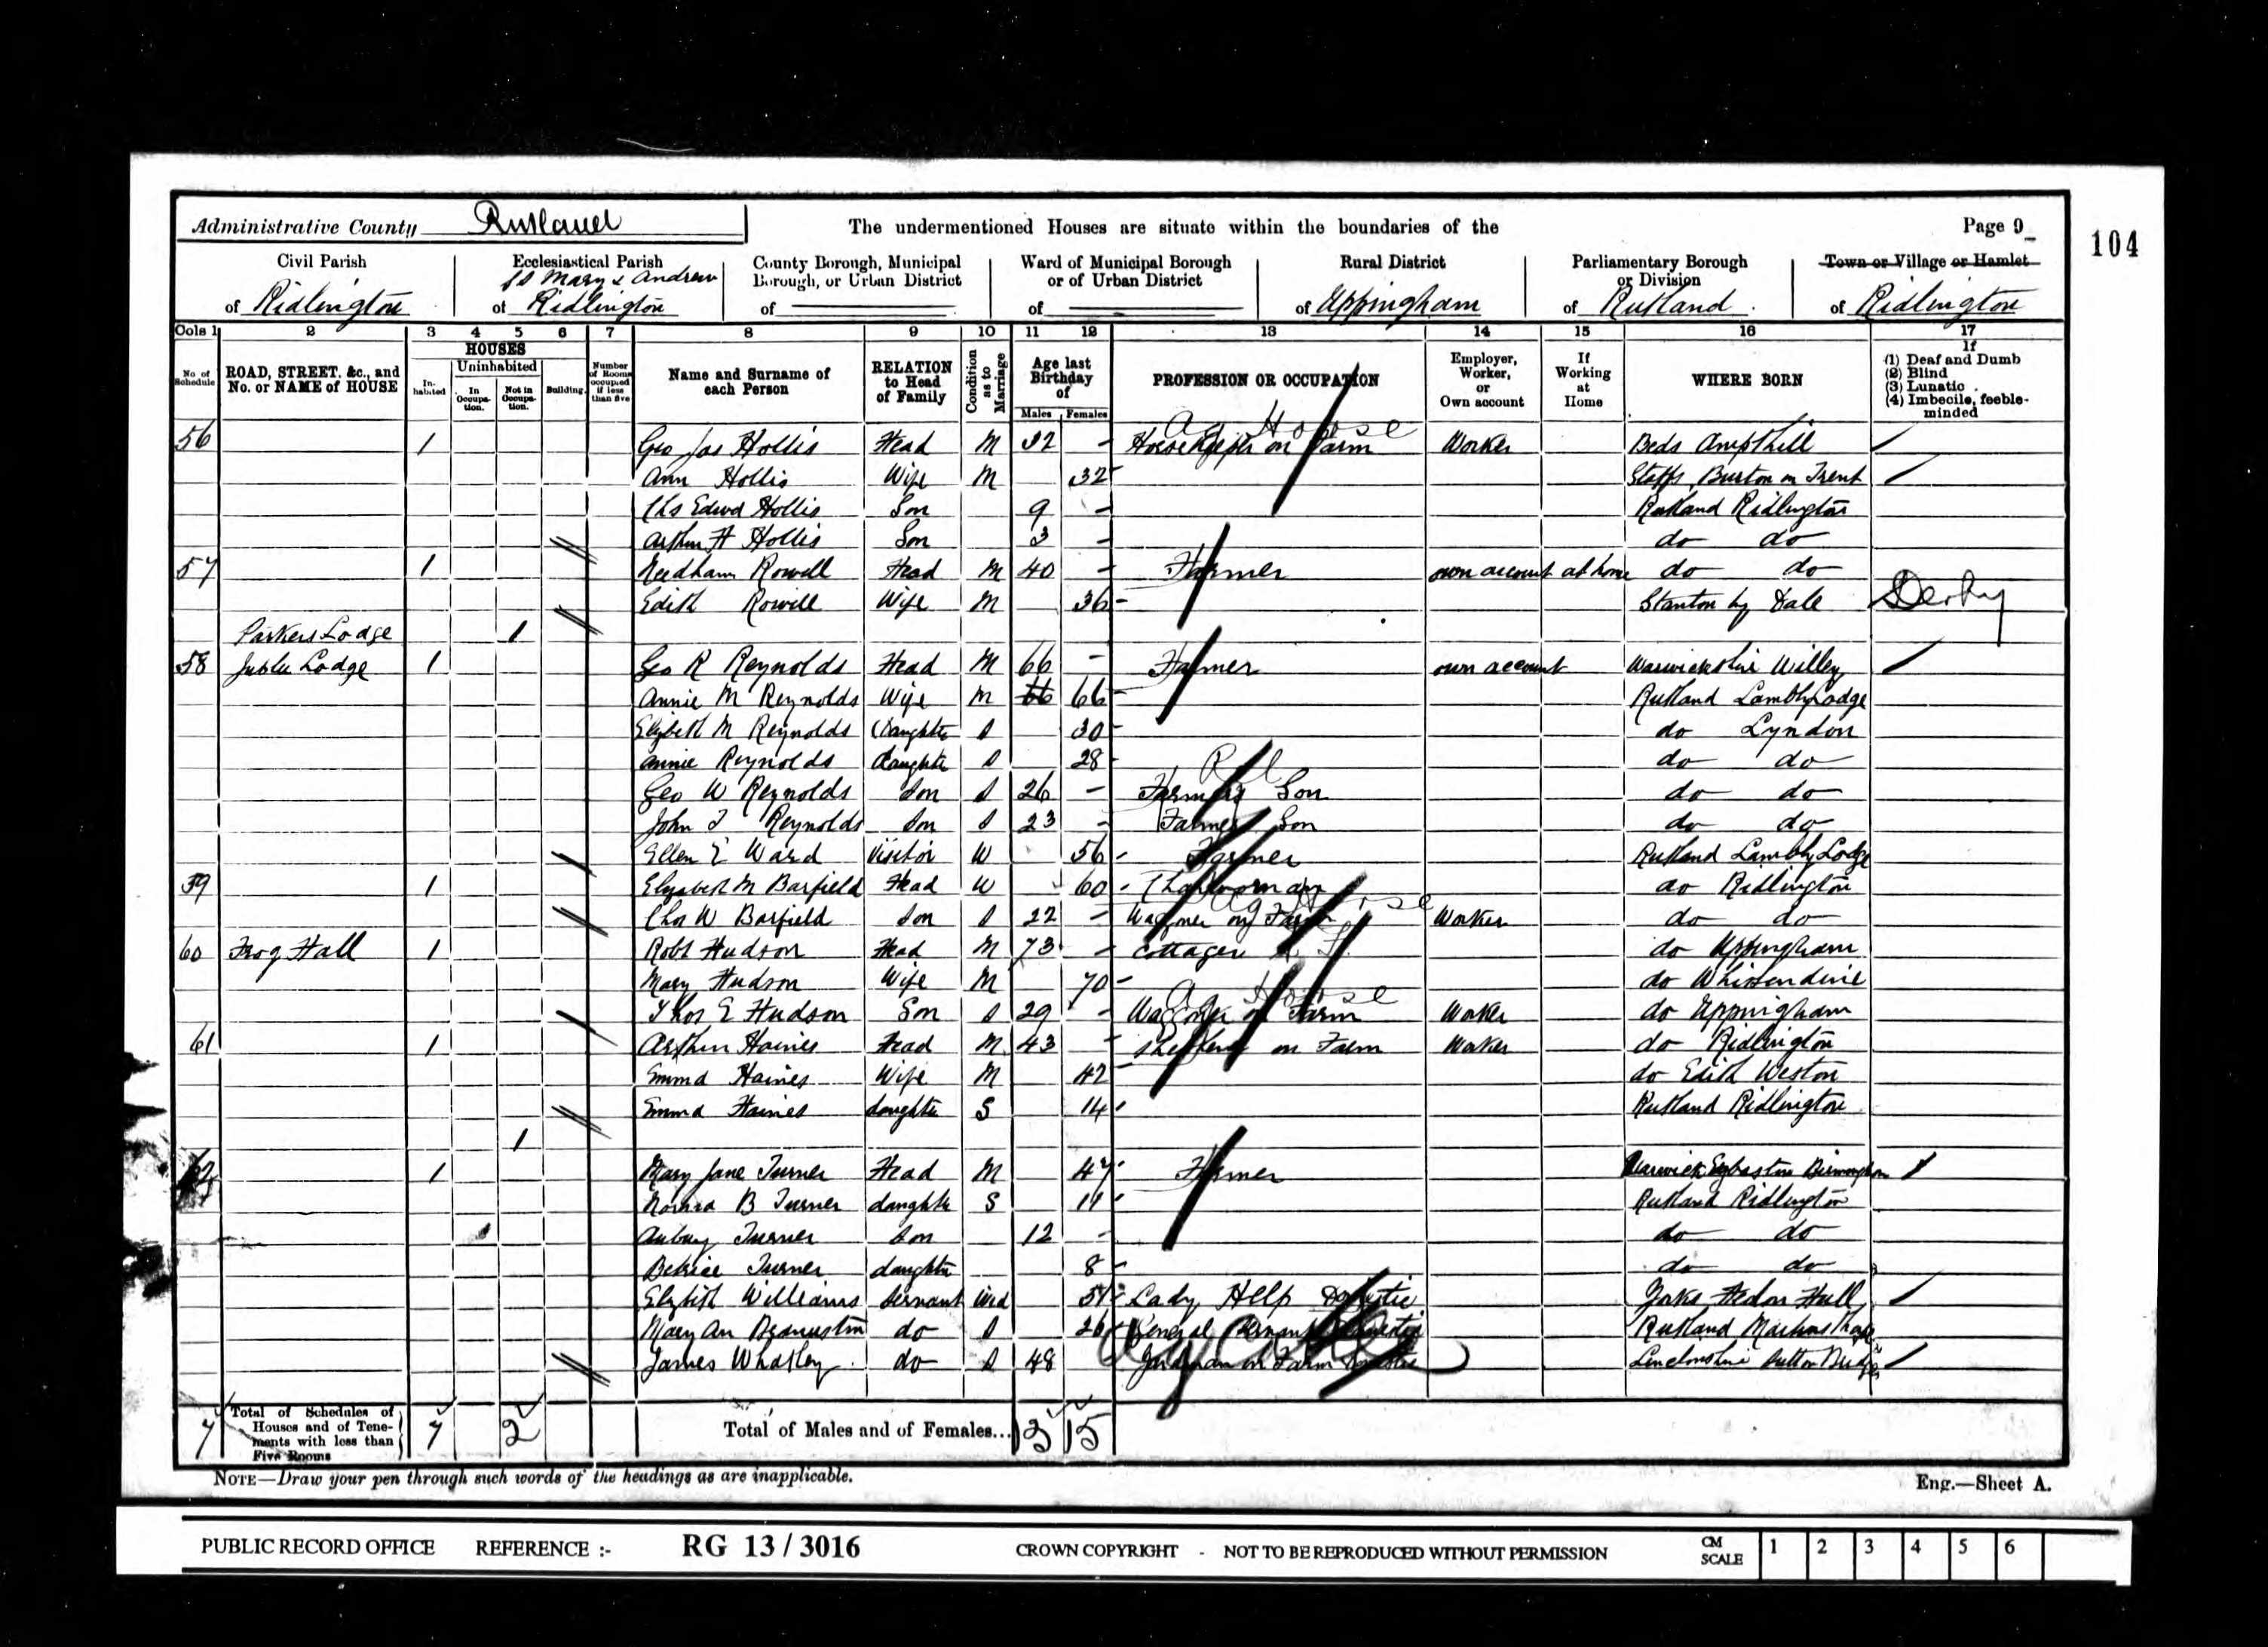 Administrative County Rutland The undermentioned Houses are situate within the boundaries of the Page 9 104
Civil Parish of Ridlington
Ecclesiastical Parish SS Mary & Andrew of Ridlington
County Borough, Municipal Borough, or Urban District of
Ward of Municipal Borough or of Urban District of
Rural District of Uppingham
Parliamentary Borough or Division of Rutland
Town or Village or Hamlet of Ridlington
Cols 1 2 3 4 5 6 7 8 9 10 11 12 13 14 15 16 17
No. of Schedule ROAD, STREET, &c., and No. or NAME of HOUSE HOUSES Inhabited Uninhabited In Occupation. Not in Occupation. Building. Number of Rooms occupied if less than five Name and Surname of each Person RELATION to Head of Family Condition as to Marriage Age last Birthday of Males Females PROFESSION OR OCCUPATION Employer, Worker, or Own account If Working at Home WHERE BORN If (1) Deaf and Dumb (2) Blind (3) Lunatic (4) Imbecile, feeble-minded
Ag Horse
56 1 Geo Jas Hollis Head M 32 - Horsekeeper on Farm Worker Beds Ampthill
Ann Hollis Wife M 32 Staffs, Burton on Trent
Chs Edwd Hollis Son 9 - Rutland Ridlington
Arthur H Hollis Son 3 - do do
57 1 Needham Rowell Head M 40 - Farmer own account at home do do
Edith Rowell Wife M 36 - Stanton by Dale Derby
Parkers Lodge 1
58 Jublee Lodge 1 Geo R Reynolds Head M 66 - Farmer own account Warwickshire Willey
Annie M Reynolds Wife M 66 66 - Rutland Lambly Lodge
Elizbeth M Reynolds Daughter S 30 - do Lyndon
Annie Reynolds daughter S 28 - do do
Geo W Reynolds Son S 26 - Farmers Son do do
John T Reynolds Son S 23 - Farmers Son do do
Ellen E Ward Visitor W 56 - Farmer Rutland Lambly Lodge
59 1 Elizabeth M Barfield Head W 60 - Charwoman do Ridlington
Ag Horse
Chas W Barfield Son S 22 - Waggoner on Farm Worker do do
60 Frog Hall 1 Robt Hudson Head M 73 - Cottager do Uppingham
Mary Hudson Wife M 70 - do Whissendine
Ag Horse
Thos E Hudson Son S 29 - Waggoner on Farm Worker do Uppingham
61 1 Arthur Haines Head M 43 - Shepherd on Farm Worker do Ridlington
Emma Haines Wife M 42 do Edith Weston
Emma Haines daughter S 14 Rutland Ridlington
1
62 1 Mary Jane Turner Head M 47 Farmer Warwick Egbaston Birmingham
B Turner daughter S 11 Rutland Ridlington
Aubrey Turner Son 12 - do do
Betrice Turner daughter 8 - do do
Elizbth Williams Servant Wid 51 Lady Help Domestic Yorks Hedon Hull
Mary An do S 26 General Servant Domestic Rutland
James Whatley do S 48 on Farm Domestic Lincolnshire Sutton Bridge
7 Total of Schedules of Houses and of Tenements with less than Five Rooms 7 2 Total of Males and of Females... 13 15
NOTE—Draw your pen through such words of the headings as are inapplicable. Eng.—Sheet A.
PUBLIC RECORD OFFICE REFERENCE :- RG 13 / 3016 CROWN COPYRIGHT - NOT TO BE REPRODUCED WITHOUT PERMISSION CM SCALE 1 2 3 4 5 6